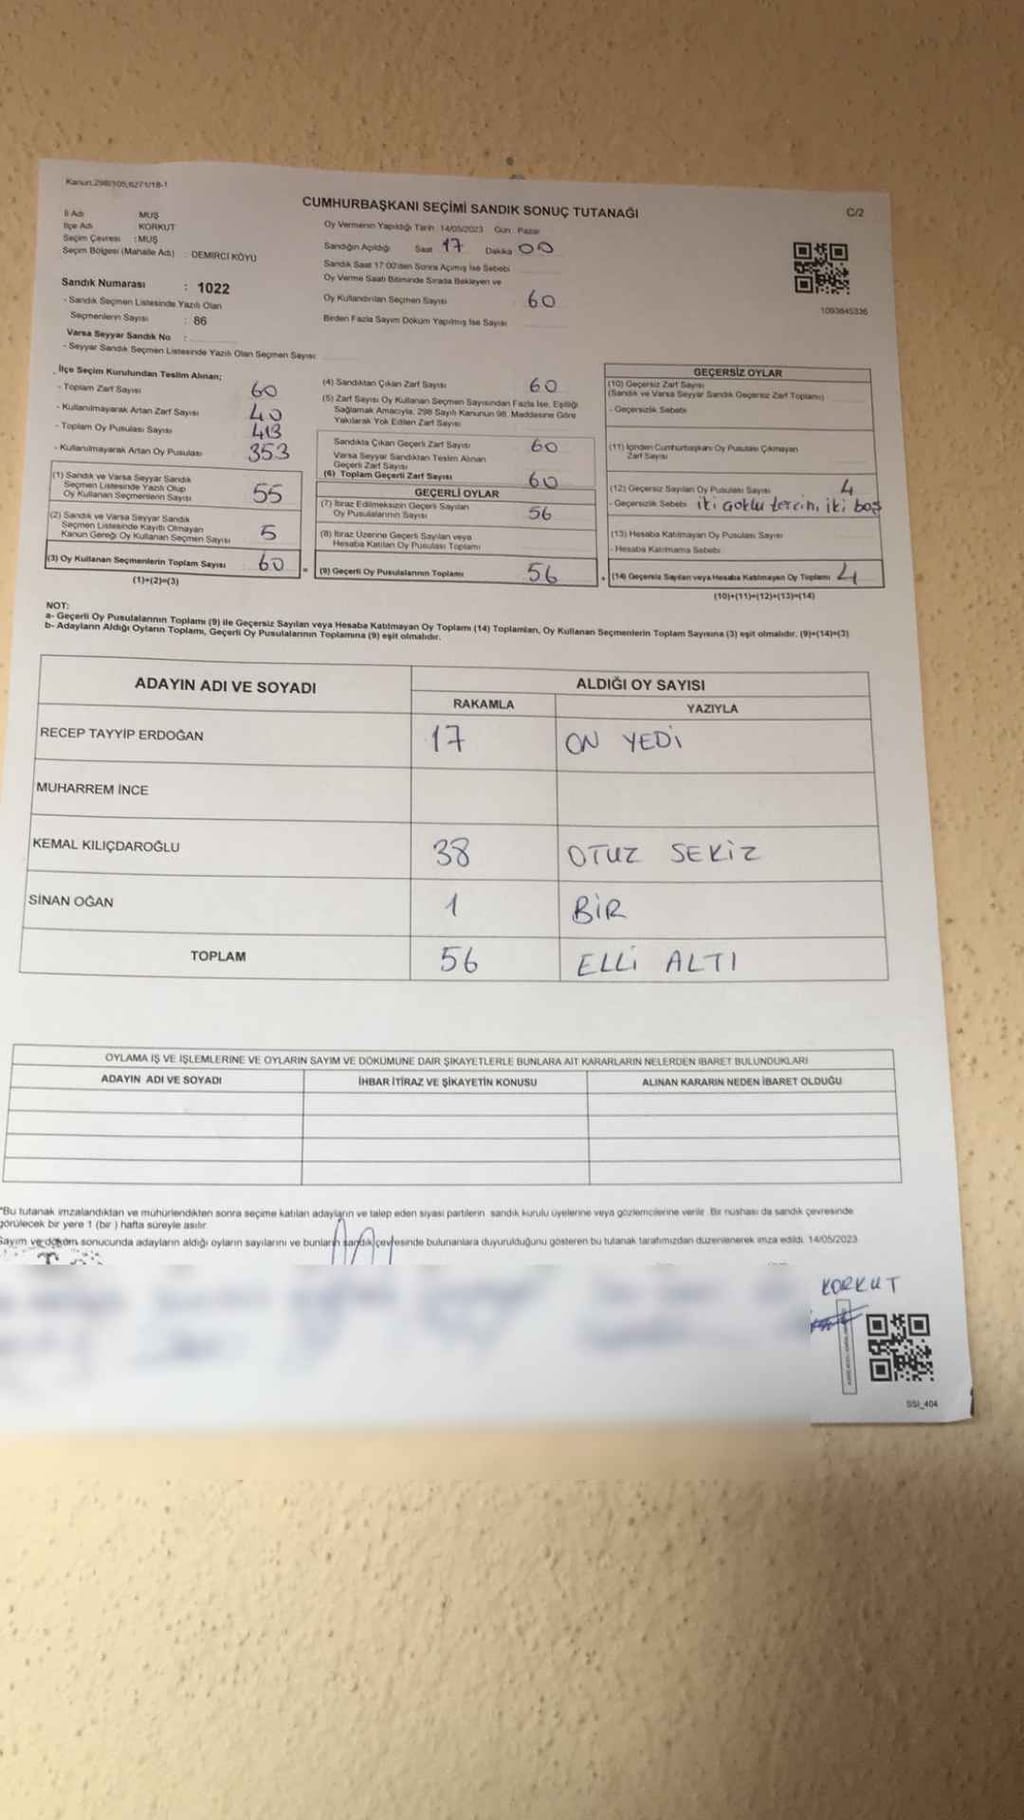 Kanun:298/105,6271/18-1
CUMHURBAŞKANI SEÇİMİ SANDIK SONUÇ TUTANAĞI
C/2
İl Adı MUŞ
İlçe Adı KORKUT
Seçim Çevresi : MUŞ
Seçim Bölgesi (Mahalle Adı) : DEMİRCİ KÖYÜ
Sandık Numarası : 1022
- Sandık Seçmen Listesinde Yazılı Olan
Seçmenlerin Sayısı : 86
Varsa Seyyar Sandık No :
- Seyyar Sandık Seçmen Listesinde Yazılı Olan Seçmen Sayısı:
Oy Vermenin Yapıldığı Tarih: 14/05/2023 Gün: Pazar
Sandığın Açıldığı Saat 17 Dakika 00
Sandık Saat 17:00'den Sonra Açılmış İse Sebebi
Oy Verme Saati Bitiminde Sırada Bekleyen ve
Oy Kullandırılan Seçmen Sayısı 60
Birden Fazla Sayım Döküm Yapılmış İse Sayısı
1093645336
İlçe Seçim Kurulundan Teslim Alınan;
- Toplam Zarf Sayısı 60
- Kullanılmayarak Artan Zarf Sayısı 40
- Toplam Oy Pusulası Sayısı 413
- Kullanılmayarak Artan Oy Pusulası 353
(1) Sandık ve Varsa Seyyar Sandık
Seçmen Listesinde Yazılı Olup
Oy Kullanan Seçmenlerin Sayısı 55
(2) Sandık ve Varsa Seyyar Sandık
Seçmen Listesinde Kayıtlı Olmayan
Kanun Gereği Oy Kullanan Seçmen Sayısı 5
(3) Oy Kullanan Seçmenlerin Toplam Sayısı 60
(1)+(2)=(3)
(4) Sandıktan Çıkan Zarf Sayısı 60
(5) Zarf Sayısı Oy Kullanan Seçmen Sayısından Fazla İse, Eşitliği
Sağlamak Amacıyla, 298 Sayılı Kanunun 98. Maddesine Göre
Yakılarak Yok Edilen Zarf Sayısı
Sandıkta Çıkan Geçerli Zarf Sayısı 60
Varsa Seyyar Sandıktan Teslim Alınan
Geçerli Zarf Sayısı
(6) Toplam Geçerli Zarf Sayısı 60
GEÇERLİ OYLAR
(7) İtiraz Edilmeksizin Geçerli Sayılan
Oy Pusulalarının Sayısı 56
(8) İtiraz Üzerine Geçerli Sayılan veya
Hesaba Katılan Oy Pusulası Toplamı
(9) Geçerli Oy Pusulalarının Toplamı 56
GEÇERSİZ OYLAR
(10) Geçersiz Zarf Sayısı
(Sandık ve Varsa Seyyar Sandık Geçersiz Zarf Toplamı)
- Geçersizlik Sebebi
(11) İçinden Cumhurbaşkanı Oy Pusulası Çıkmayan
Zarf Sayısı
(12) Geçersiz Sayılan Oy Pusulası Sayısı 4
- Geçersizlik Sebebi iki çoklu tercih, iki boş
(13) Hesaba Katılmayan Oy Pusulası Sayısı
- Hesaba Katılmama Sebebi
(14) Geçersiz Sayılan veya Hesaba Katılmayan Oy Toplamı 4
(10)+(11)+(12)+(13)=(14)
NOT:
a- Geçerli Oy Pusulalarının Toplamı (9) ile Geçersiz Sayılan veya Hesaba Katılmayan Oy Toplamı (14) Toplamları, Oy Kullanan Seçmenlerin Toplam Sayısına (3) eşit olmalıdır. (9)+(14)=(3)
b- Adayların Aldığı Oyların Toplamı, Geçerli Oy Pusulalarının Toplamına (9) eşit olmalıdır.
ADAYIN ADI VE SOYADI ALDIĞI OY SAYISI
RAKAMLA YAZIYLA
RECEP TAYYİP ERDOĞAN 17 ON YEDİ
MUHARREM İNCE
KEMAL KILIÇDAROĞLU 38 OTUZ SEKİZ
SİNAN OĞAN 1 BİR
TOPLAM 56 ELLİ ALTI
OYLAMA İŞ VE İŞLEMLERİNE VE OYLARIN SAYIM VE DÖKÜMÜNE DAİR ŞİKAYETLERLE BUNLARA AİT KARARLARIN NELERDEN İBARET BULUNDUKLARI
ADAYIN ADI VE SOYADI İHBAR İTİRAZ VE ŞİKAYETİN KONUSU ALINAN KARARIN NEDEN İBARET OLDUĞU
*Bu tutanak imzalandıktan ve mühürlendikten sonra seçime katılan adayların ve talep eden siyasi partilerin sandık kurulu üyelerine veya gözlemcilerine verilir. Bir nüshası da sandık çevresinde
görülecek bir yere 1 (bir ) hafta süreyle asılır.
Sayım ve döküm sonucunda adayların aldığı oyların sayılarını ve bunların sandık çevresinde bulunanlara duyurulduğunu gösteren bu tutanak tarafımızdan düzenlenerek imza edildi. 14/05/2023
KORKUT
SSI_404